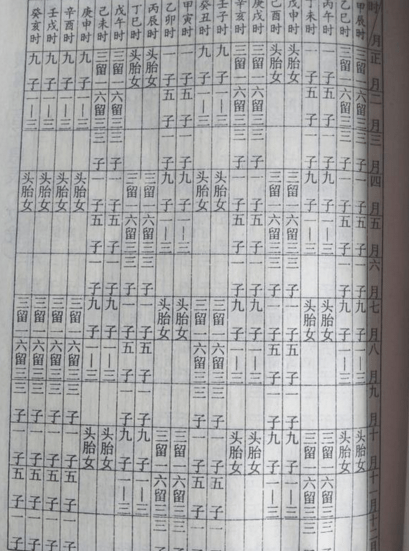 时/月 正月 二月 三月 四月 五月 六月 七月 八月 九月 十月 十一月 十二月
甲辰时 三留一 六留三 三子 一子 五子 一子 九子 一—三 头胎女
乙巳时 三留一 六留三 三子 一子 五子 一子 九子 一—三 头胎女
丙午时 一子 五子 一子 九子 一—三 头胎女 三留一 六留三 三
丁未时 一子 五子 一子 九子 一—三 头胎女 三留一 六留三 三
戊申时 头胎女 三留一 六留三 三子 一子 五子 一子 九子 一—三
己酉时 头胎女 三留一 六留三 三子 一子 五子 一子 九子 一—三
庚戌时 三留一 六留三 三子 一子 五子 一子 九子 一—三 头胎女
辛亥时 三留一 六留三 三子 一子 五子 一子 九子 一—三 头胎女
壬子时 九子 一—三 头胎女 三留一 六留三 三子 一子
癸丑时 九子 一—三 头胎女 三留一 六留三 三子 一子
甲寅时 一子 五子 一子 九子 一—三 头胎女 三留一 六留三 三子
乙卯时 一子 五子 一子 九子 一—三 头胎女 三留一 六留三 三子
丙辰时 头胎女 三留一 六留三 三子 一子 五子 一子 九子 一—三
丁巳时 头胎女 三留一 六留三 三子 一子 五子 一子 九子 一—三
戊午时 三留一 六留三 三子 一子 五子 一子 九子 一—三 头胎女
己未时 三留一 六留三 三子 一子 五子 一子 九子 一—三 头胎女
庚申时 九子 一—三 头胎女 三留一 六留三 三子 一子 五子 一子
辛酉时 九子 一—三 头胎女 三留一 六留三 三子 一子 五子 一子
壬戌时 九子 一—三 头胎女 三留一 六留三 三子 一子 五子 一子
癸亥时 九子 一—三 头胎女 三留一 六留三 三子 一子 五子 一子